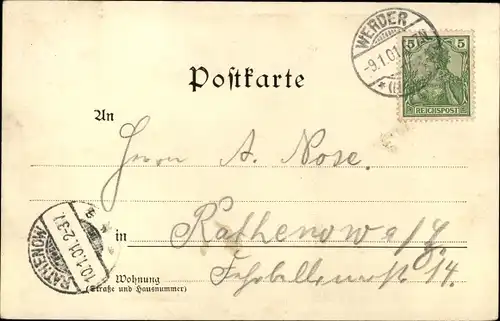 WERDER
-9.1.01
5 5
REICHSPOST
Postkarte
An
Herrn A. Nose.
in Rathenow a/H.
14.
Wohnung
(Straße und Hausnummer)
RATHENOW
10.1.01.2-3